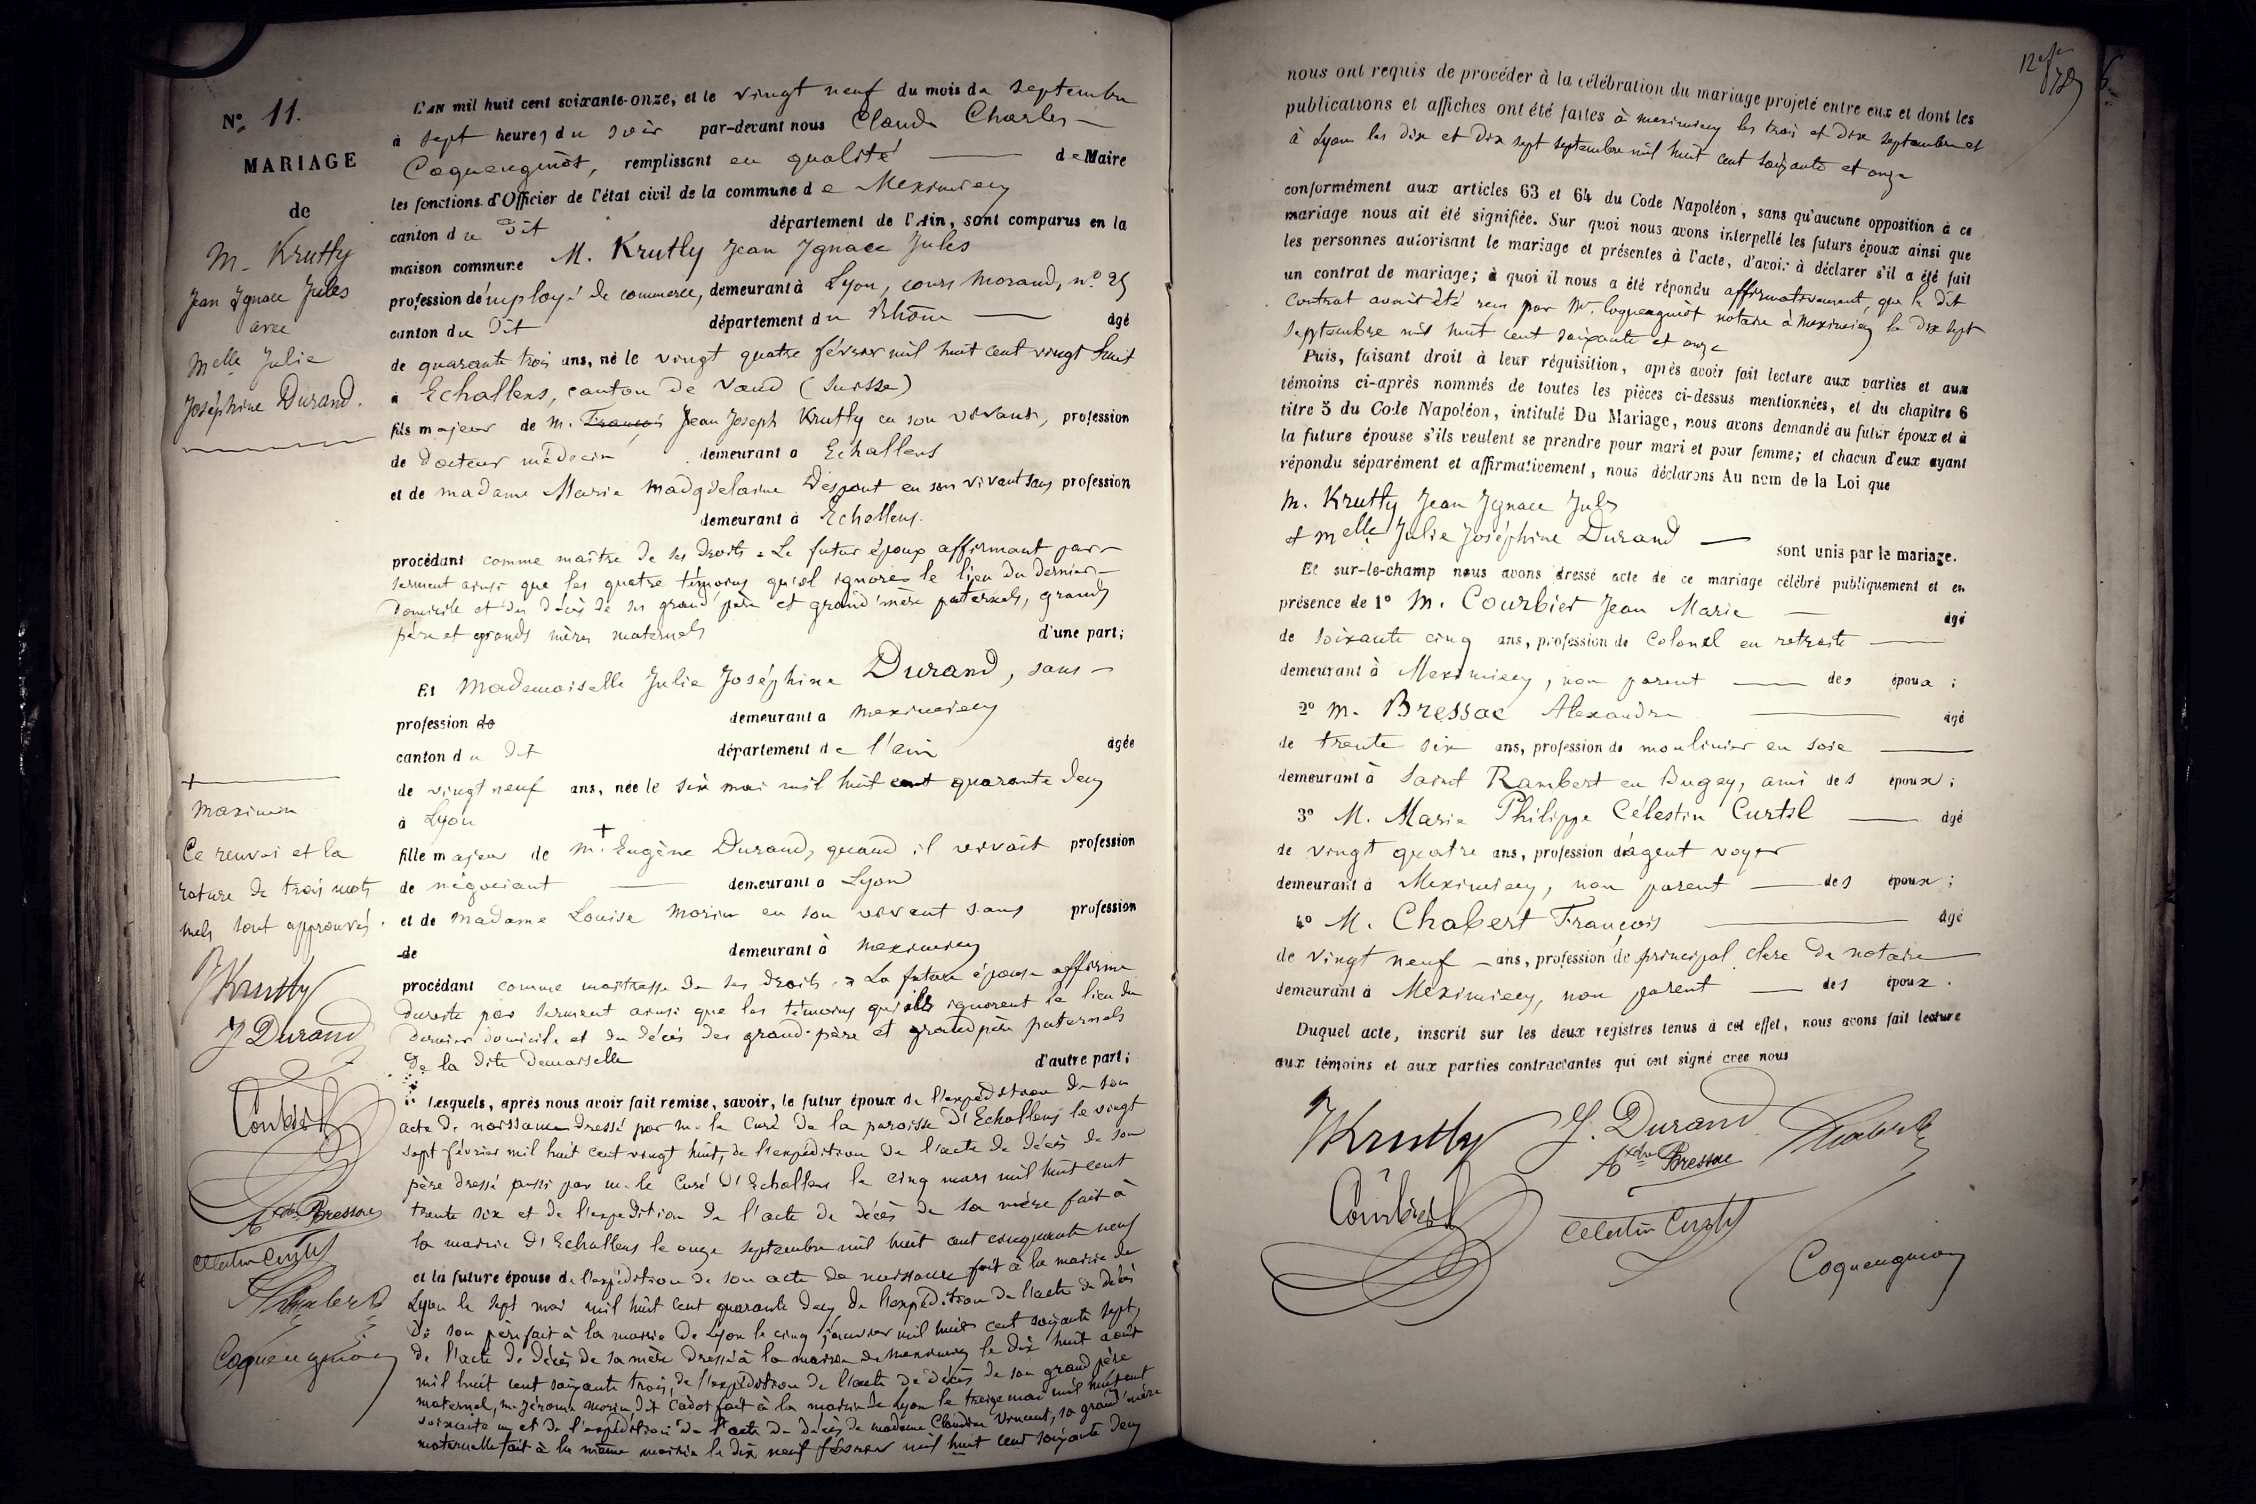 N° 11.
MARIAGE
de
M. Krutly
Jean Ignace Jules
avec
Melle Julie
Joséphine Durand.
L'AN mil huit cent soixante-onze, et le vingt neuf du mois de septembre
à sept heures du soir par-devant nous Claude Charles
Coquengniot, remplissant en qualité de Maire
les fonctions d'Officier de l'état civil de la commune de Meximieux
canton du dit département de l'Ain, sont comparus en la
maison commune M. Krutly Jean Ignace Jules
profession d'employé de commerce, demeurant à Lyon, cours Morand, n° 25
canton du dit département du Rhône âgé
de quarante trois ans, né le vingt quatre février mil huit cent vingt huit
à Echallens, canton de Vaud (Suisse)
fils majeur de M. François Jean Joseph Krutly en son vivant, profession
de docteur médecin demeurant à Echallens
et de madame Marie Magdelaine Despont en son vivant sans profession
demeurant à Echallens.
procédant comme maître de ses droits. Le futur époux affirmant par
serment ainsi que les quatre témoins qu'il ignore le lieu du dernier
domicile et du décès de ses grand'père et grand'mère paternels, grands
père et grands mères maternels d'une part;
Et Mademoiselle Julie Joséphine Durand, sans
profession de demeurant à Meximieux
canton du dit département de l'ain âgée
de vingt neuf ans, née le six mai mil huit cent quarante deux
à Lyon
fille majeur de M. + Eugène Durand, quand il vivait profession
de négociant demeurant à Lyon
et de madame Louise Morin en son vivant sans profession
de demeurant à Meximieux
procédant comme maîtresse de ses droits. La future épouse affirme
par serment ainsi que les témoins qu'ils ignorent le lieu du
dernier domicile et du décès des grand-père et grand père paternels
De la dite demoiselle d'autre part;
Lesquels, après nous avoir fait remise, savoir, le futur époux de l'expédition de son
acte de naissance dressé par M. le Curé de la paroisse d'Echallens le vingt
sept février mil huit cent vingt huit, de l'expédition de l'acte de décès de son
père dressé aussi par M. le Curé d'Echallens le cinq mars mil huit cent
trente six et de l'expédition de l'acte de décès de sa mère fait à
la mairie d'Echallens le onze septembre mil huit cent cinquante neuf
et la future épouse de l'expédition de son acte de naissance fait à la mairie de
Lyon le sept mai mil huit cent quarante deux de l'expédition de l'acte de décès
de son père fait à la mairie de Lyon le cinq janvier mil huit cent soixante sept,
de l'acte de décès de sa mère dressé à la mairie de Meximieux le dix huit août
mil huit cent soixante trois, de l'expédition de l'acte de décès de son grand père
maternel, M. Jérome Morin dit Cadot fait à la mairie de Lyon le treize mai mil huit cent
soixante un et de l'expédition de l'acte de décès de madame Claudine Vincent, sa grand'mère
maternelle fait à la même mairie le dix neuf février mil huit cent soixante deux
+
Maximin
Ce renvoi et la
rature de trois mots
nuls sont approuvés.
JKrutly
J Durand
Courbier
Axdre Bressac
Celestin Curtil
Chabert
Coquengniot
nous ont requis de procéder à la célébration du mariage projeté entre eux et dont les
publications et affiches ont été faites à Meximieux les trois et dix septembre et
à Lyon les dix et dix sept septembre mil huit cent soixante et onze
conformément aux articles 63 et 64 du Code Napoléon, sans qu'aucune opposition à ce
mariage nous ait été signifiée. Sur quoi nous avons interpellé les futurs époux ainsi que
les personnes autorisant le mariage et présentes à l'acte, d'avoir à déclarer s'il a été fait
un contrat de mariage; à quoi il nous a été répondu affirmativement, que le dit
contrat avait été reçu par Mr. Coquengniot notaire à Meximieux le dix sept
septembre mil huit cent soixante et onze
Puis, faisant droit à leur réquisition, après avoir fait lecture aux parties et aux
témoins ci-après nommés de toutes les pièces ci-dessus mentionnées, et du chapitre 6
titre 5 du Code Napoléon, intitulé Du Mariage, nous avons demandé au futur époux et à
la future épouse s'ils veulent se prendre pour mari et pour femme; et chacun d'eux ayant
répondu séparément et affirmativement, nous déclarons Au nom de la Loi que
M. Krutly Jean Ignace Jules
et Melle Julie Joséphine Durand sont unis par le mariage.
Et sur-le-champ nous avons dressé acte de ce mariage célébré publiquement et en
présence de 1° M. Courbier Jean Marie âgé
de soixante cinq ans, profession de Colonel en retraite
demeurant à Meximieux, non parent des époux;
2° M. Bressac Alexandre âgé
de trente six ans, profession de moulinier en soie
demeurant à Saint Rambert en Bugey, ami des époux;
3° M. Marie Philippe Célestin Curtil âgé
de vingt quatre ans, profession d'agent voyer
demeurant à Meximieux, non parent des époux;
4° M. Chabert François âgé
de vingt neuf ans, profession de principal clerc de notaire
demeurant à Meximieux, non parent des époux.
Duquel acte, inscrit sur les deux registres tenus à cet effet, nous avons fait lecture
aux témoins et aux parties contractantes qui ont signé avec nous
JKrutly J. Durand Chabert
Axdre Bressac
Courbier
Celestin Curtil
Coquengniot